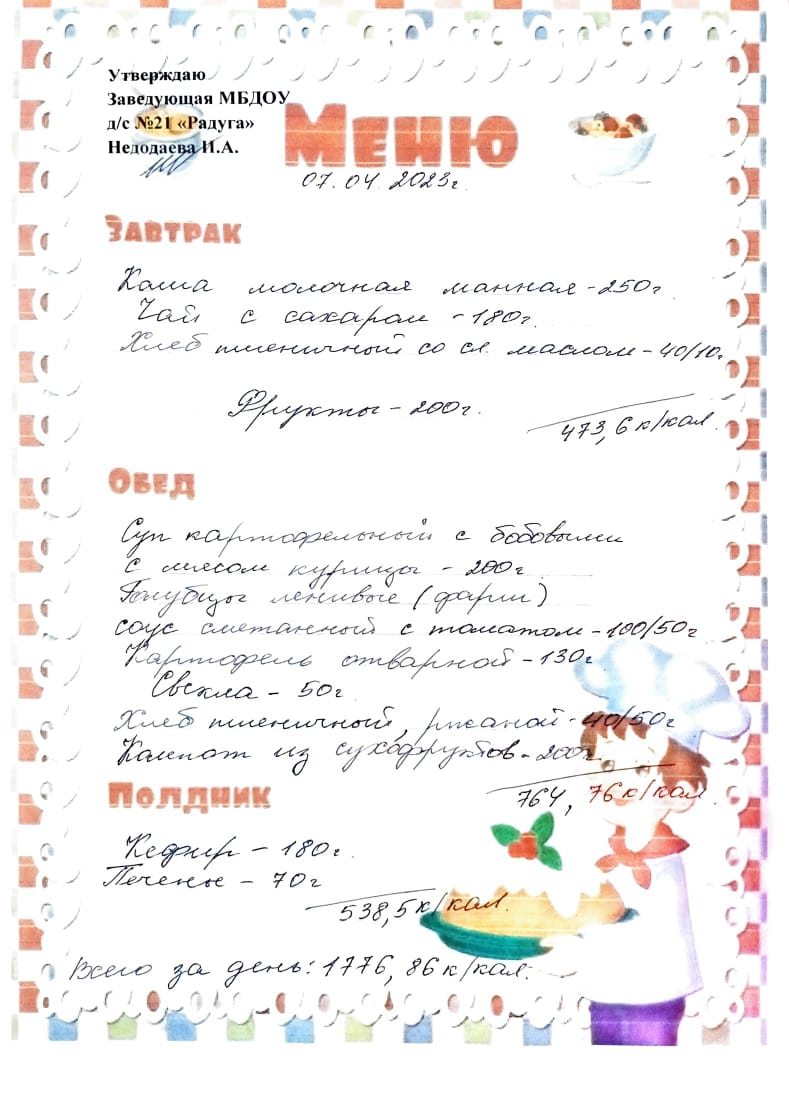 Утверждаю
Заведующая МБДОУ
д/с №21 «Радуга»
Недодаева И.А.
Меню
07.04.2023г.
Завтрак
Каша молочная манная - 250г
Чай с сахаром - 180г.
Хлеб пшеничный со сл. маслом - 40/10г
Фрукты - 200г.
473,6 к/кал.
Обед
Суп картофельный с бобовыми
с мясом курицы - 200г
Голубцы ленивые (фарш)
соус сметанный с томатом - 100/50г
Картофель отварной - 130г
Свекла - 50г
Хлеб пшеничный, ржаной - 40/50г
Компот из сухофруктов - 200г
764,76 к/кал.
Полдник
Кефир - 180г.
Печенье - 70г
538,5 к/кал.
Всего за день: 1776,86 к/кал.